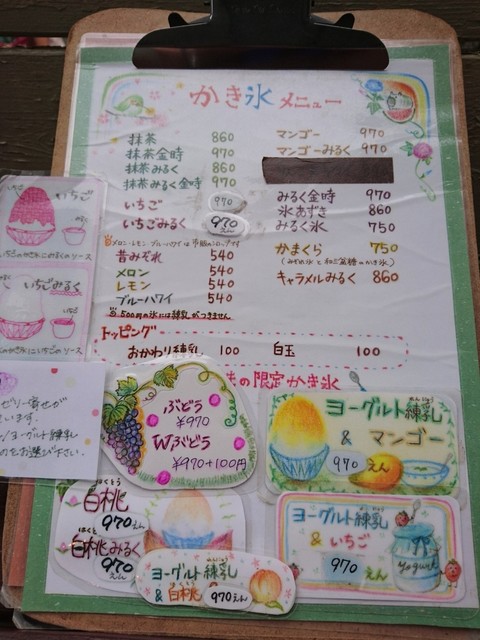 かき氷メニュー
抹茶 860
抹茶金時 970
抹茶みるく 860
抹茶みるく金時 970
いちご 970
いちごみるく 970
メロン・レモン・ブルーハワイは市販のシロップです
昔みぞれ 540
メロン 540
レモン 540
ブルーハワイ 540
500円の氷には練乳がつきません
マンゴー 970
マンゴーみるく 970
みるく金時 970
氷あずき 860
みるく氷 750
かまくら 750
(みぞれ氷と和三盆糖のかき氷)
キャラメルみるく 860
トッピング
おかわり練乳 100 白玉 100
の限定かき氷
ぶどう
¥970
Wぶどう
¥970+100円
ヨーグルト練乳
れんにゅう
& マンゴー
970えん
はくとう
白桃
970えん
はくとう
白桃みるく
970えん
ヨーグルト練乳
れんにゅう
& いちご
970えん
Yogurt
ヨーグルト練乳
れんにゅう
& 白桃 970えん
いちご
いちごみるく
ゼリー寄せが
います。
ヨーグルト練乳
をお選び下さい。